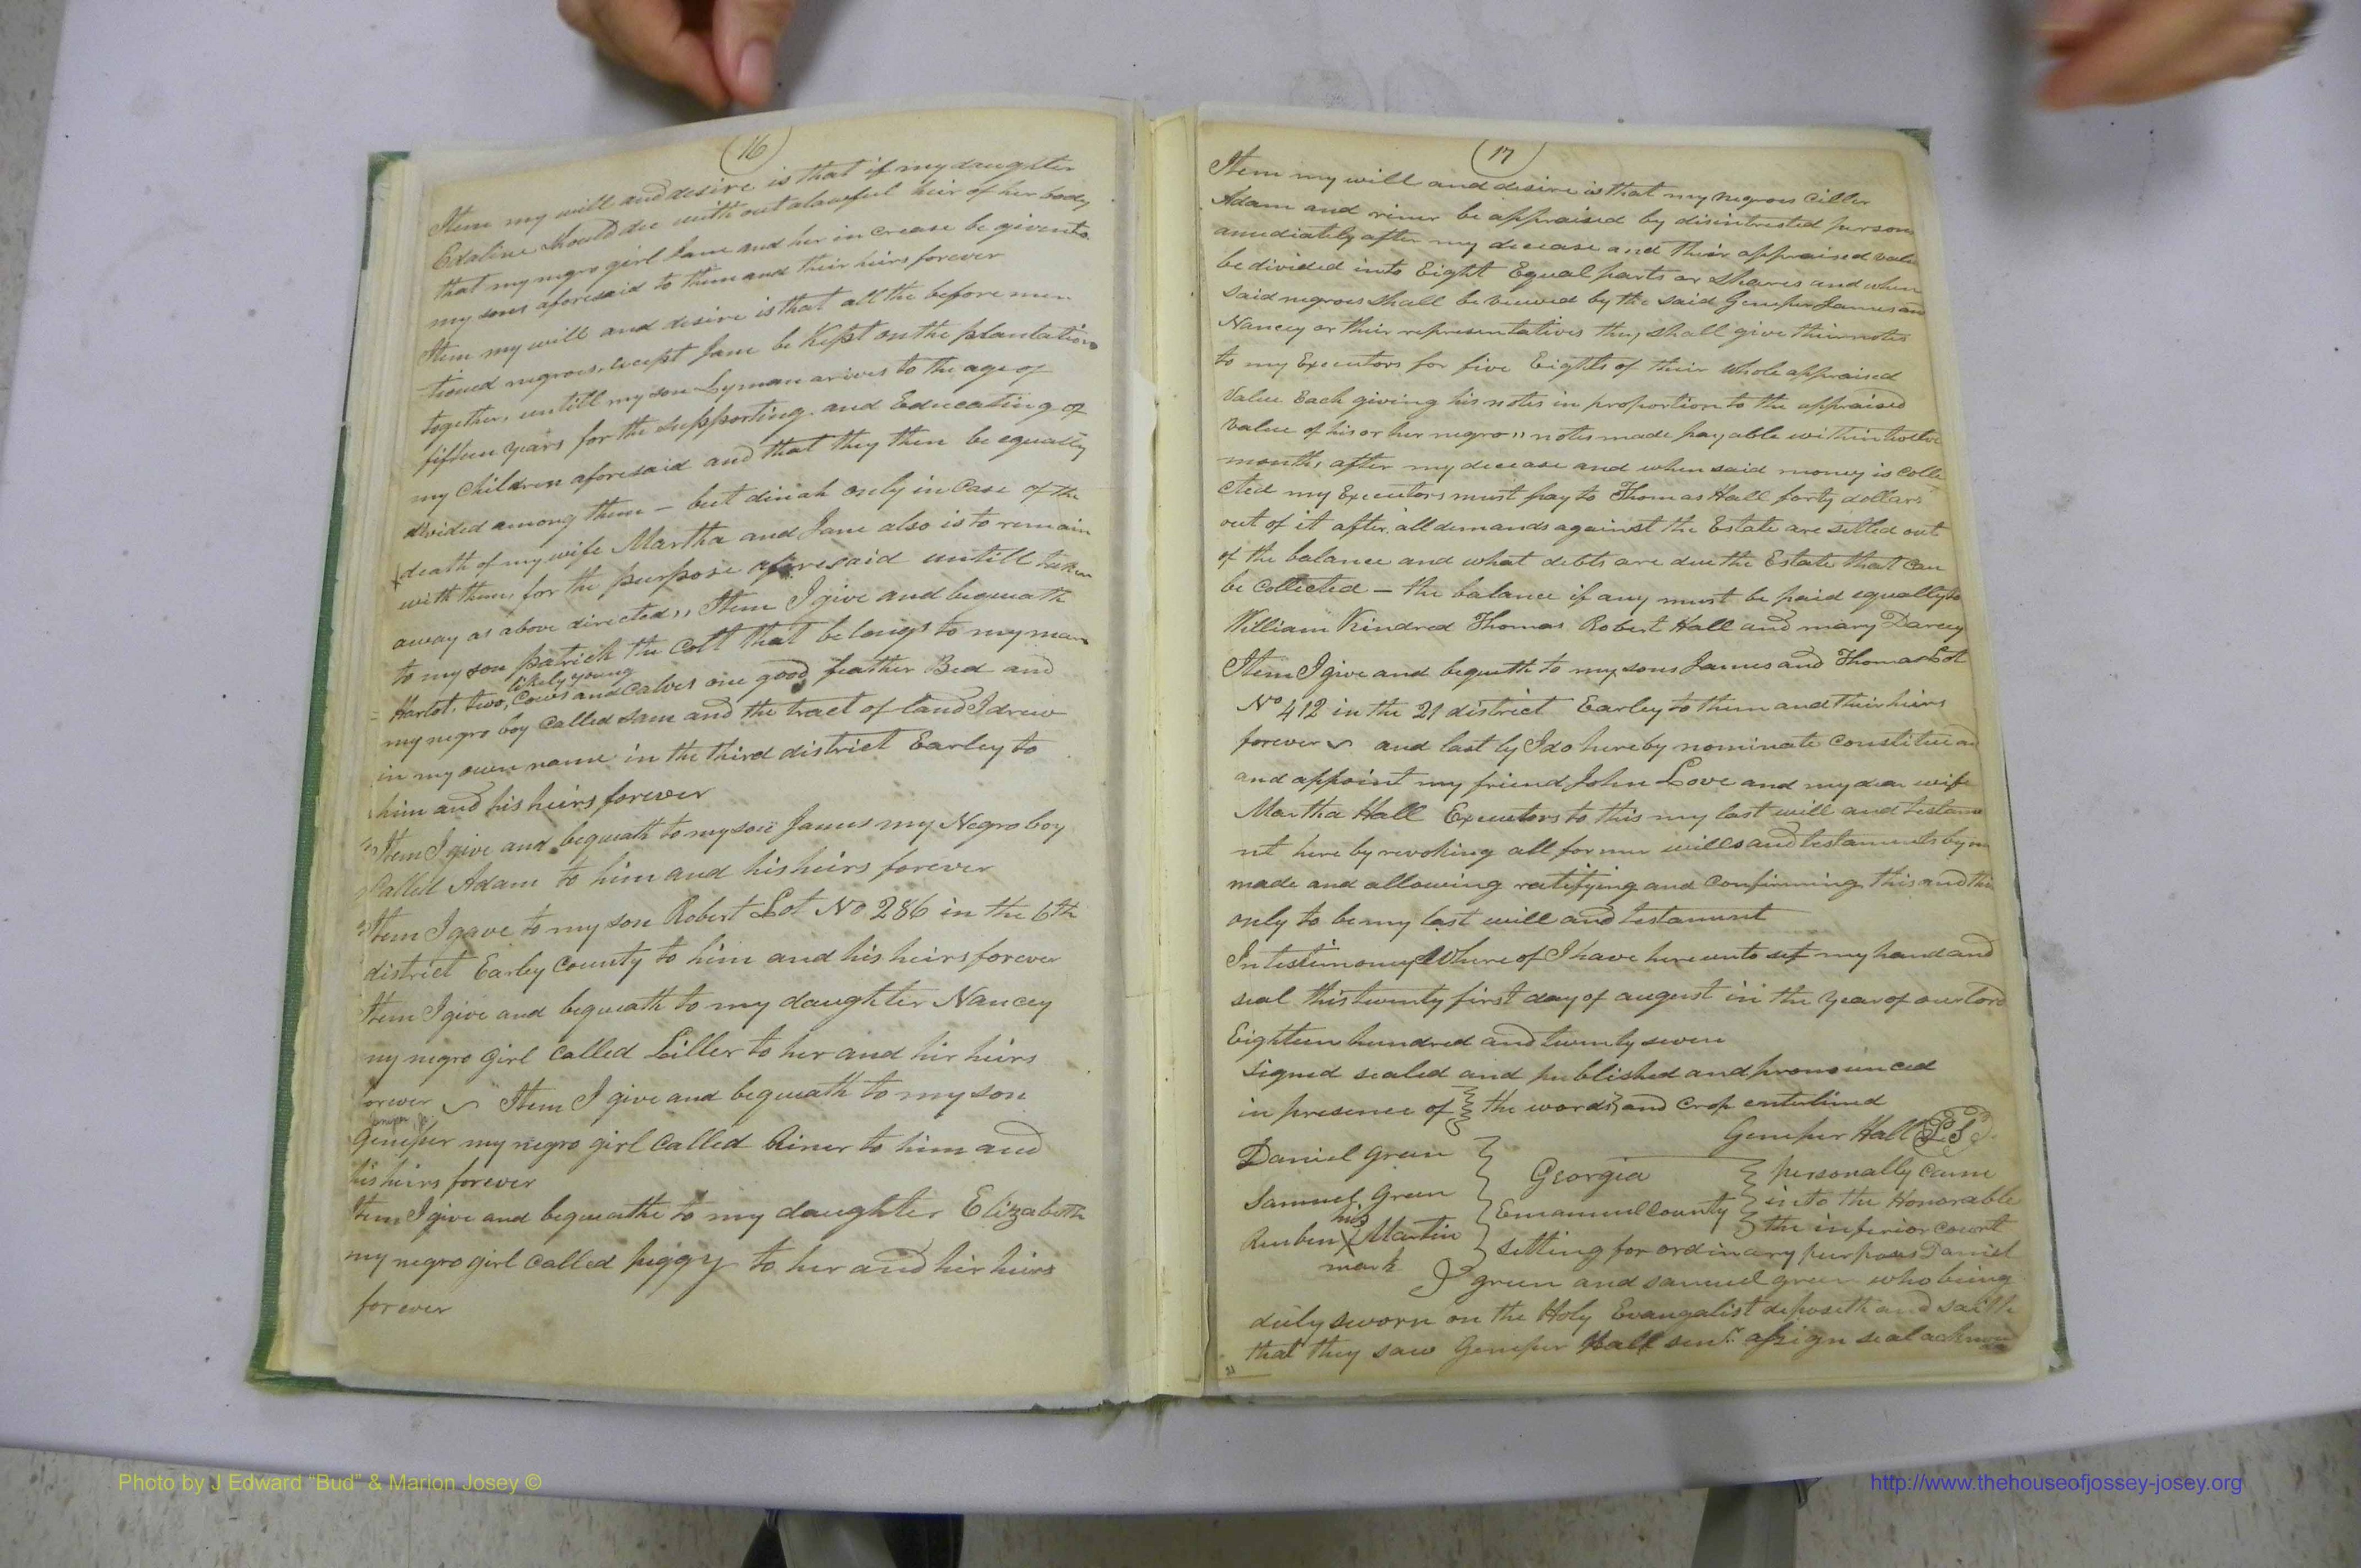 16
Item my will and desire is that if my daughter
Edaline should die with out a lawful heir of her body
that my negro girl Jane and her increase be given to
my sons aforesaid to them and their heirs forever
Item my will and desire is that all the before men
tioned negroes, except Jane be Kept on the plantation
together, untill my son Lyman arives to the age of
fifteen years for the supporting and Educating of
my Children aforesaid and that they then be equally
divided among them – but dinah only in Case of the
death of my wife Martha and Jane also is to remain
with them, for the purpose aforesaid untill taken
away as above directed,, Item I give and bequeath
to my son patrick the Colt that belongs to my mare
likely young
Harlot, two, Cows and Calves one good feather Bed and
my negro boy Called Sam and the tract of land I drew
in my own name in the third district Earley to
him and his heirs forever
Item I give and bequeath to my son James my Negro boy
Called Adam to him and his heirs forever
Item I gave to my son Robert Lot No 286 in the 6th
district Earley County to him and his heirs forever
Item I give and bequeath to my daughter Nancey
my negro girl Called Ciller to her and hir heirs
forever Item I give and bequeath to my son
Geneper my negro girl Called Riner to him and
his heirs forever
Item I give and bequeathe to my daughter Elizabeth
my negro girl Called piggy to her and hir heirs
forever
17
Item my will and desire is that my negroes Ciller
Adam and riner be appraised by disintrested persons
amediately after my decease and their appraised value
be divided into Eight Equal parts or Shares and when
said negroes shall be received by the said Geneper James and
Nancey or their representatives they shall give their notes
to my Executors for five Eights of their whole appraised
Value Each giving his notes in proportion to the appraised
value of his or her negro,, notes made payable within twelve
months after my decease and when said money is Colle
cted my Executors must pay to Thomas Hall forty dollars
out of it after all demands against the Estate are setled out
of the balance and what debts are due the Estate that Can
be Collected – the balance if any must be paid equally to
William Kindred Thomas Robert Hall and mary Darcey
Item I give and bequeth to my sons James and Thomas Lot
No 412 in the 21 district Earley to them and their heirs
forever and lastly I do hereby nominate Constitue and
and appoint my friend John Love and my dear wife
Martha Hall Executors to this my last will and testame
nt here by revoking all former wills and testaments by me
made and allowing ratifying and Confirming this and this
only to be my last will and testament
In testimony Where of I have here unto set my hand and
seal this twenty first day of august in the year of our lord
Eighteen hundred and twenty seven
Signed sealed and published and pronounced
in presence of the words and Crop enterlined
Geneper Hall LS
Daniel Green
Samuel Green
his
Reuben X Martin
mark
Georgia
Emanuel County
personally came
into the Honorable
the inferior court
setting for ordinary purposes Daniel
green and samuel green who being
duly sworn on the Holy Evangalist deposeth and saith
that they saw Geneper Hall senr. assign seal acknow
Photo by J Edward “Bud” & Marion Josey ©
http://www.thehouseofjossey-josey.org